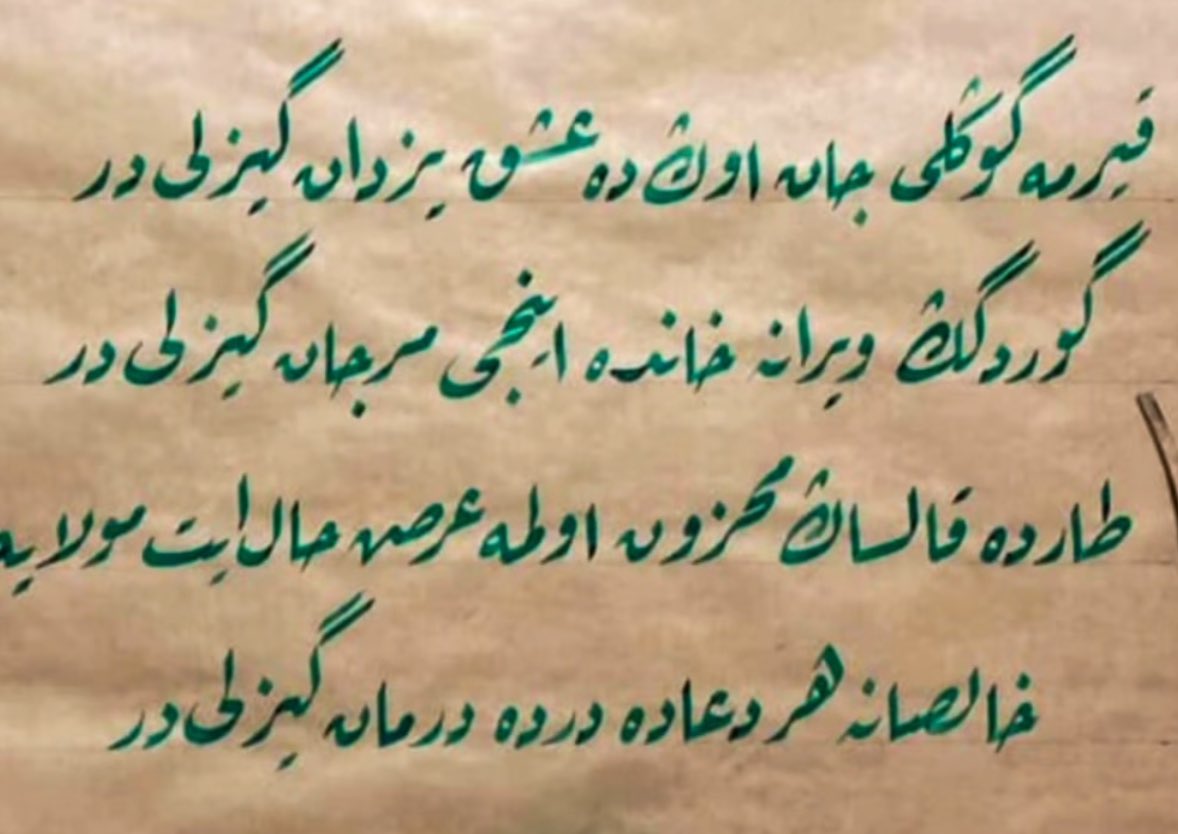 قیرمه گوڭلی جان اوڭ ده عشق یزدان گیزلی در
گوردگڭ ویرانه خانده اینجی مرجان گیزلی در
طارده قالساڭ محزون اولمه عرض حال ایت مولایه
خالصانه هر دعاده درده درمان گیزلی در